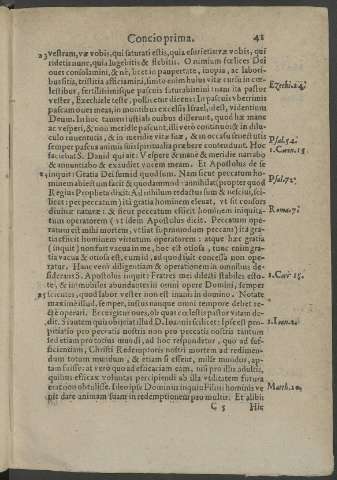 Concio prima. 41
vestram, væ vobis, qui saturati estis, quia esurietis: væ vobis, qui
ridetis nunc, quia lugebitis & flebitis. O nimium fœlices Dei
oues consolamini, & ne, licet in paupertate, inopia, ac labori-
bus sitis, tristitia afficiamini, finito enim huius vitæ cursu in cœ-
lestibus, fertilissimisque pascuis saturabimini nam ita pastor
vester, Ezechiele teste, pollicetur dicens: In pascuis vberrimis
pascam oues meas, in montibus excelsis Israel, &c.
Deum. In hoc tamen iustiab ouibus differunt, quod hæ mane
ac vesperi, & non meridie pascunt, illi vero continuo & in dilu-
culo iuuentutis, & in meridie vitæ suæ, & in occasu senectutis
semper pascua animis suis spiritualia præbere contendunt. Hoc
faciebat S. Dauid qui ait: Vespere & mane & meridie narrabo
& annuntiabo & exaudiet vocem meam. Et Apostolus de se
inquit: Gratia Dei sum id quod sum. Nam sicut peccatum ho-
minem abiectum facit & quodammodo annihilat (propter quod
Regius Propheta dixit: Ad nihilum redactus sum & nesciui, sci-
licet: pet peccatum) ita gratia hominem eleuat, vt sit consors
diuinæ naturæ: & sicut peccatum efficit hominem iniquita-
tum operatorem (vt idem Apostolus dicit. Peccatum ope-
ratum est mihi mortem, vt fiat supra modum peccans) ita gra-
tia efficit hominem virtutum operatorem: atque hæc gratia
(inquit) non fuit vacua in me, hoc est otiosa, tunc enim gra-
tia vacua & otiosa est, cum id, ad quod sit concessa non ope-
ratur. Hanc verò diligentiam & operationem in omnibus de-
siderans S. Apostolus inquit: Fratres mei dilecti stabiles esto-
te, & immobiles abundantes in omni opere Domini, semper
scientes, quod labor vester non est inanis in domino. Notate
maximè illud, semper, insinuans quòd omni tempore debet re-
cte operari. Ecce igitur oues, ob quas cœlestis pastor vitam de-
dit. Si autem quis obijciat illud D. Ioannis scilicet: Ipse est pro-
pitiatio pro peccatis nostris non pro peccatis nostris tantum
sed etiam pro totius mundi, ad hoc respondetur, quò ad suf-
ficientiam, Christi Redemptoris nostri mortem ad redimen-
dum totum mundum, & etiam si essent, mille mundos, ap-
tam fuisse: at verò quo ad efficaciam eam, nisi pro illis adultis,
quibus efficax voluntas percipiendi ab illa vtilitatem futura
erat non obtulisse. Ideo ipse Dominus inquit: Filius hominis ve-
nit dare animam suam in redemptionem pro multis. Et alibi
C 5 Hic
Ezechi. 34.
Psal. 54.
1. Corin. 15.
Psal. 72.
Roma. 7.
1. Cor. 15.
1. Ioan. 2.
Matth. 20.